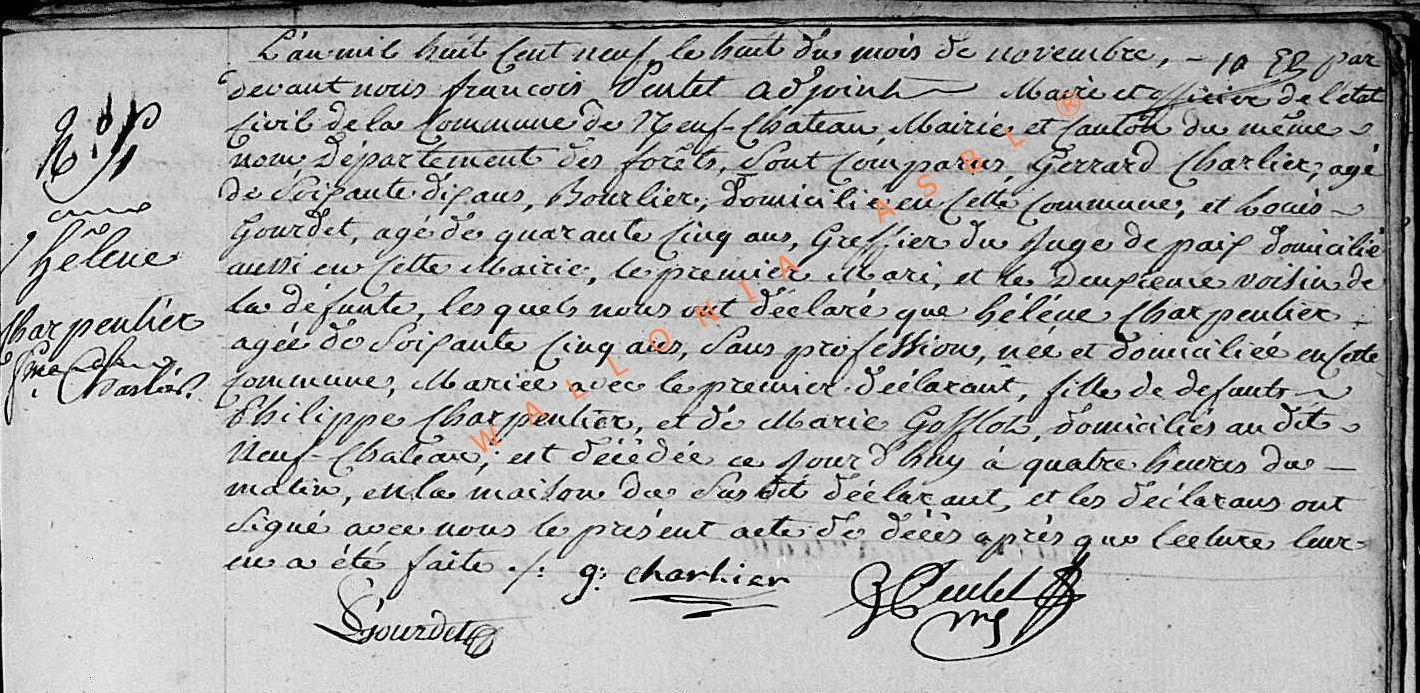 L'an mil huit Cent neuf le huit du mois de novembre, par
devant nous françois Peulet adjoint Maire et officier de l'état
Civil de la Commune de Neuf-Chateau Mairie et Canton du même
nom Département des forêts, Sont Comparus Gerrard Charlier, agé
de Soixante dix ans, Bourlier, domicilié en Cette Commune, et Louis
Gourdet, agé de quarante Cinq ans, Greffier du Juge de paix domicilié
aussi en Cette Mairie, le premier Mari, et le Deuxieme voisin de
la défunte, les quels nous ont déclaré que Héléne Charpentier
agée de Soixante Cinq ans, Sans proféssion, née et domiciliée en Cette
Commune, Mariée avec le premier déclarant, fille de defunts
Philippe Charpentier, et de Marie Gofflot, domiciliés au dit
Neuf-Chateau, est décédée ce jourd'huy à quatre heures du
matin, en la maison du Susdit déclarant, et les déclarans ont
Signé avec nous le présent acte de décès après que lecture leur
en a été faite ./.
g: charlier
Peulet
LGourdet
N.
Hélène
Charpentier
WALLONIA ASBL ®